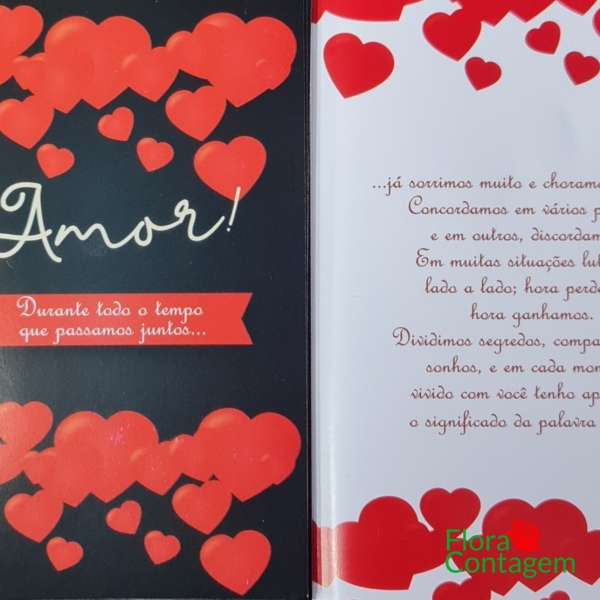 Amor!
Durante todo o tempo
que passamos juntos...
...já sorrimos muito e choram
Concordamos em vários p
e em outros, discordam
Em muitas situações lut
lado a lado; hora perde
hora ganhamos.
Dividimos segredos, compa
sonhos, e em cada mon
vivido com você tenho ap
o significado da palavra
Flora
Contagem